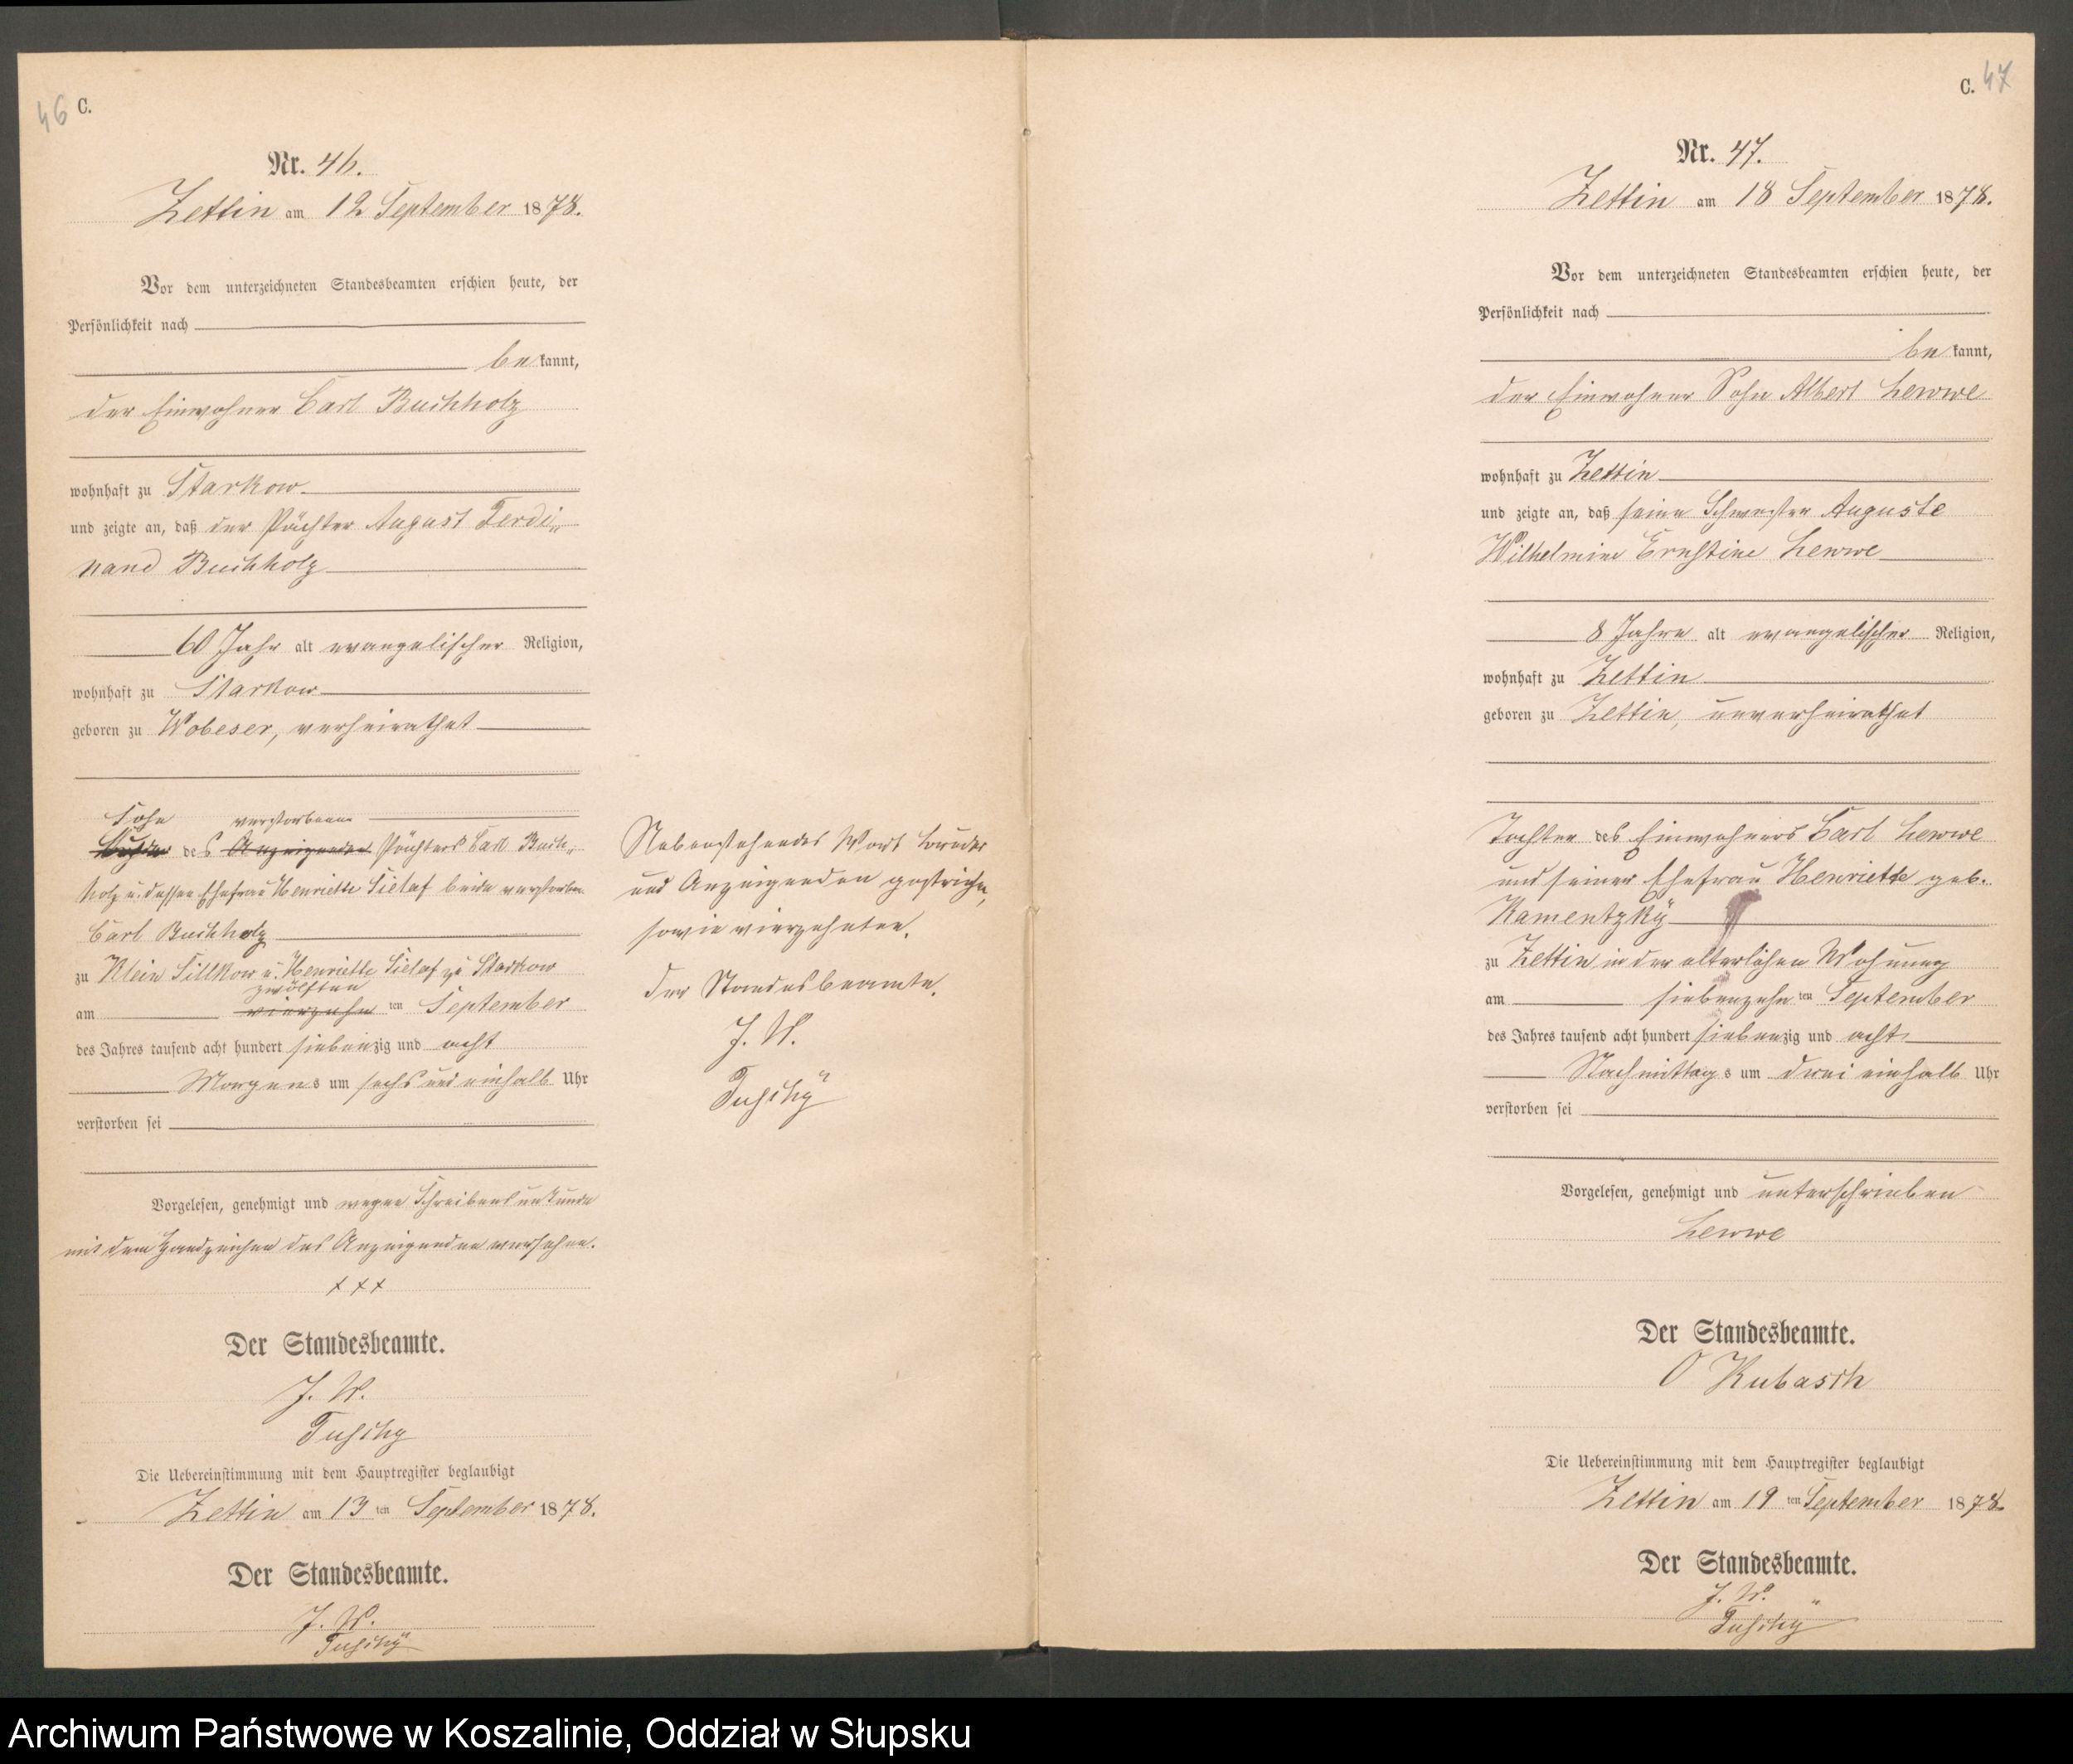 46 C.
Nr. 46.
Zettin am 12 September 1878.
Vor dem unterzeichneten Standesbeamten erschien heute, der
Persönlichkeit nach
bekannt,
der Einwohner Carl Buchholz
wohnhaft zu Starkow
und zeigte an, daß der Pächter August Ferdi-
nand Buchholz
60 Jahr alt evangelischer Religion,
wohnhaft zu Starkow
geboren zu Wobeser, verheirathet
Sohn verstorbenen
Bruder des Anzeigenden Pächters Carl Buch-
holz u. dessen Ehefrau Henriette Sielaf beide verstorben
Carl Buchholz
zu Klein Sillkow u. Henriette Sielaf zu Starkow
zwölften
am vierzehnten September
des Jahres tausend acht hundert siebenzig und acht
Morgens um sechs und einhalb Uhr
verstorben sei
Vorgelesen, genehmigt und wegen Schreibensunkunde
mit dem Handzeichen des Anzeigenden versehen.
+++
Der Standesbeamte.
J. V.
Die Uebereinstimmung mit dem Hauptregister beglaubigt
Zettin am 13 ten September 1878.
Der Standesbeamte.
J. V.
Nebenstehendes Wort Bruder
und Anzeigenden gestrichen,
sowie vierzehnten.
Der Standesbeamte.
J. V.
C. 47
Nr. 47.
Zettin am 18 September 1878.
Vor dem unterzeichneten Standesbeamten erschien heute, der
Persönlichkeit nach
bekannt,
der Einwohner Sohn Albert Lewwe
wohnhaft zu Zettin
und zeigte an, daß seine Schwester Auguste
Wilhelmine Ernstine Lewwe
8 Jahre alt evangelischer Religion,
wohnhaft zu Zettin
geboren zu Zettin, unverheirathet
Tochter des Einwohners Carl Lewwe
und seiner Ehefrau Henriette geb.
Kamentzky
zu Zettin in der elterlichen Wohnung
am siebenzehnten September
des Jahres tausend acht hundert siebenzig und acht
Nachmittags um drei einhalb Uhr
verstorben sei
Vorgelesen, genehmigt und unterschrieben
Lewwe
Der Standesbeamte.
O Kubasch
Die Uebereinstimmung mit dem Hauptregister beglaubigt
Zettin am 19 ten September 1878.
Der Standesbeamte.
J. V.
Archiwum Państwowe w Koszalinie, Oddział w Słupsku